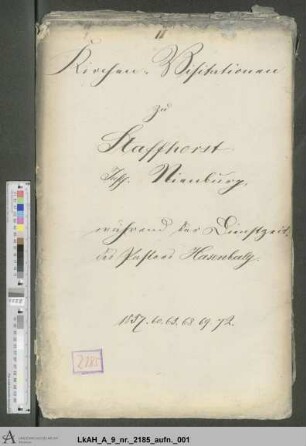 II
Kirchen-Visitationen
zu
Staffhorst
Insp. Nienburg,
während der Dienstzeit
des Pastors
1857. 60. 63. 68. 69. 72.
2185
LkAH_A_9_nr._2185_aufn._001